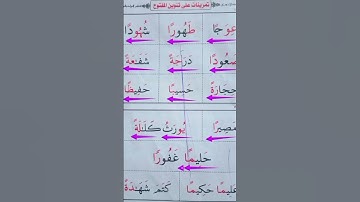 تمرينات على تنوين المفتوح
عِوَجًا طَهُورًا شُهُودًا
صَعُودًا دَرَاجَةً شَفَـٰعَةً
حِجَارَةً حَسِيبًا حَفِيظًا
مَصِيرًا يُورَثُ كَلَـٰلَةً
حَلِيمًا غَفُورًا
عَلِيمًا حَكِيمًا كَتَمَ شَهَـٰدَةً